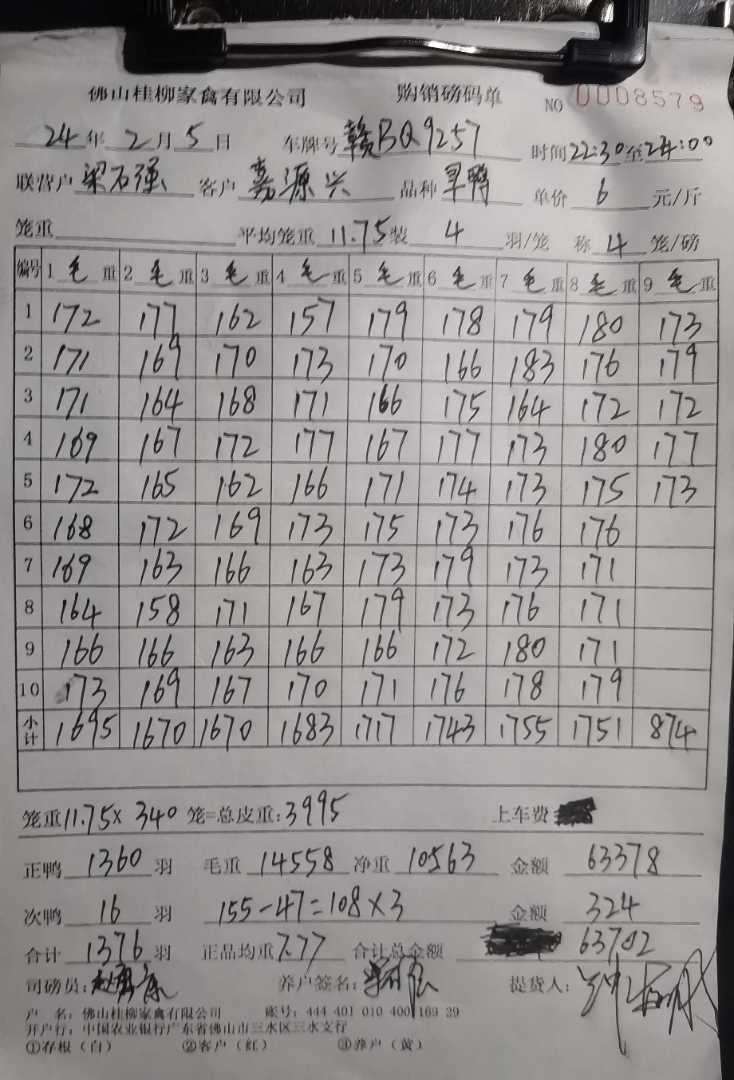 佛山桂柳家禽有限公司 购销磅码单 NO 0008579
24年2月5日 车牌号赣BQ9257 时间22:30至24:00
联营户 梁石强 客户 嘉源兴 品种 旱鸭 单价 6 元/斤
笼重 平均笼重 11.75 装 4 羽/笼 称 4 笼/磅
编号 1 毛 重 2 毛 重 3 毛 重 4 毛 重 5 毛 重 6 毛 重 7 毛 重 8 毛 重 9 毛 重
1 172 177 162 157 179 178 179 180 173
2 171 169 170 173 170 166 183 176 179
3 171 164 168 171 166 175 164 172 172
4 169 167 172 177 167 177 173 180 177
5 172 165 162 166 171 174 173 175 173
6 168 172 169 173 175 173 176 176
7 169 163 166 163 173 179 173 171
8 164 158 171 167 179 173 176 171
9 166 166 163 166 166 172 180 171
10 173 169 167 170 171 176 178 179
小计 1695 1670 1670 1683 1717 1743 1755 1751 874
笼重11.75× 340 笼=总皮重:3995 上车费
正鸭 1360 羽 毛重 14558 净重 10563 金额 63378
次鸭 16 羽 155-47=108×3 金额 324
合计 1376 羽 正品均重 7.77 合计总金额 63702
司磅员: 养户签名: 提货人:
户 名: 佛山桂柳家禽有限公司 账号: 444 401 010 400 169 39
开户行: 中国农业银行广东省佛山市三水区三水支行
①存根（白） ②客户（红） ③养户（黄）